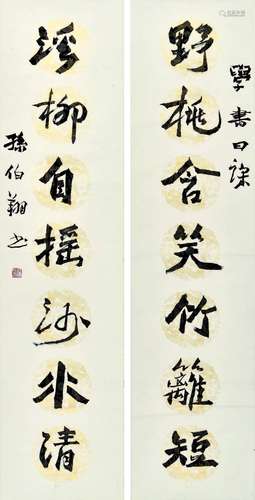 學書日課
野桃含笑竹籬短
溪柳自摇沙水清
孫伯翔书